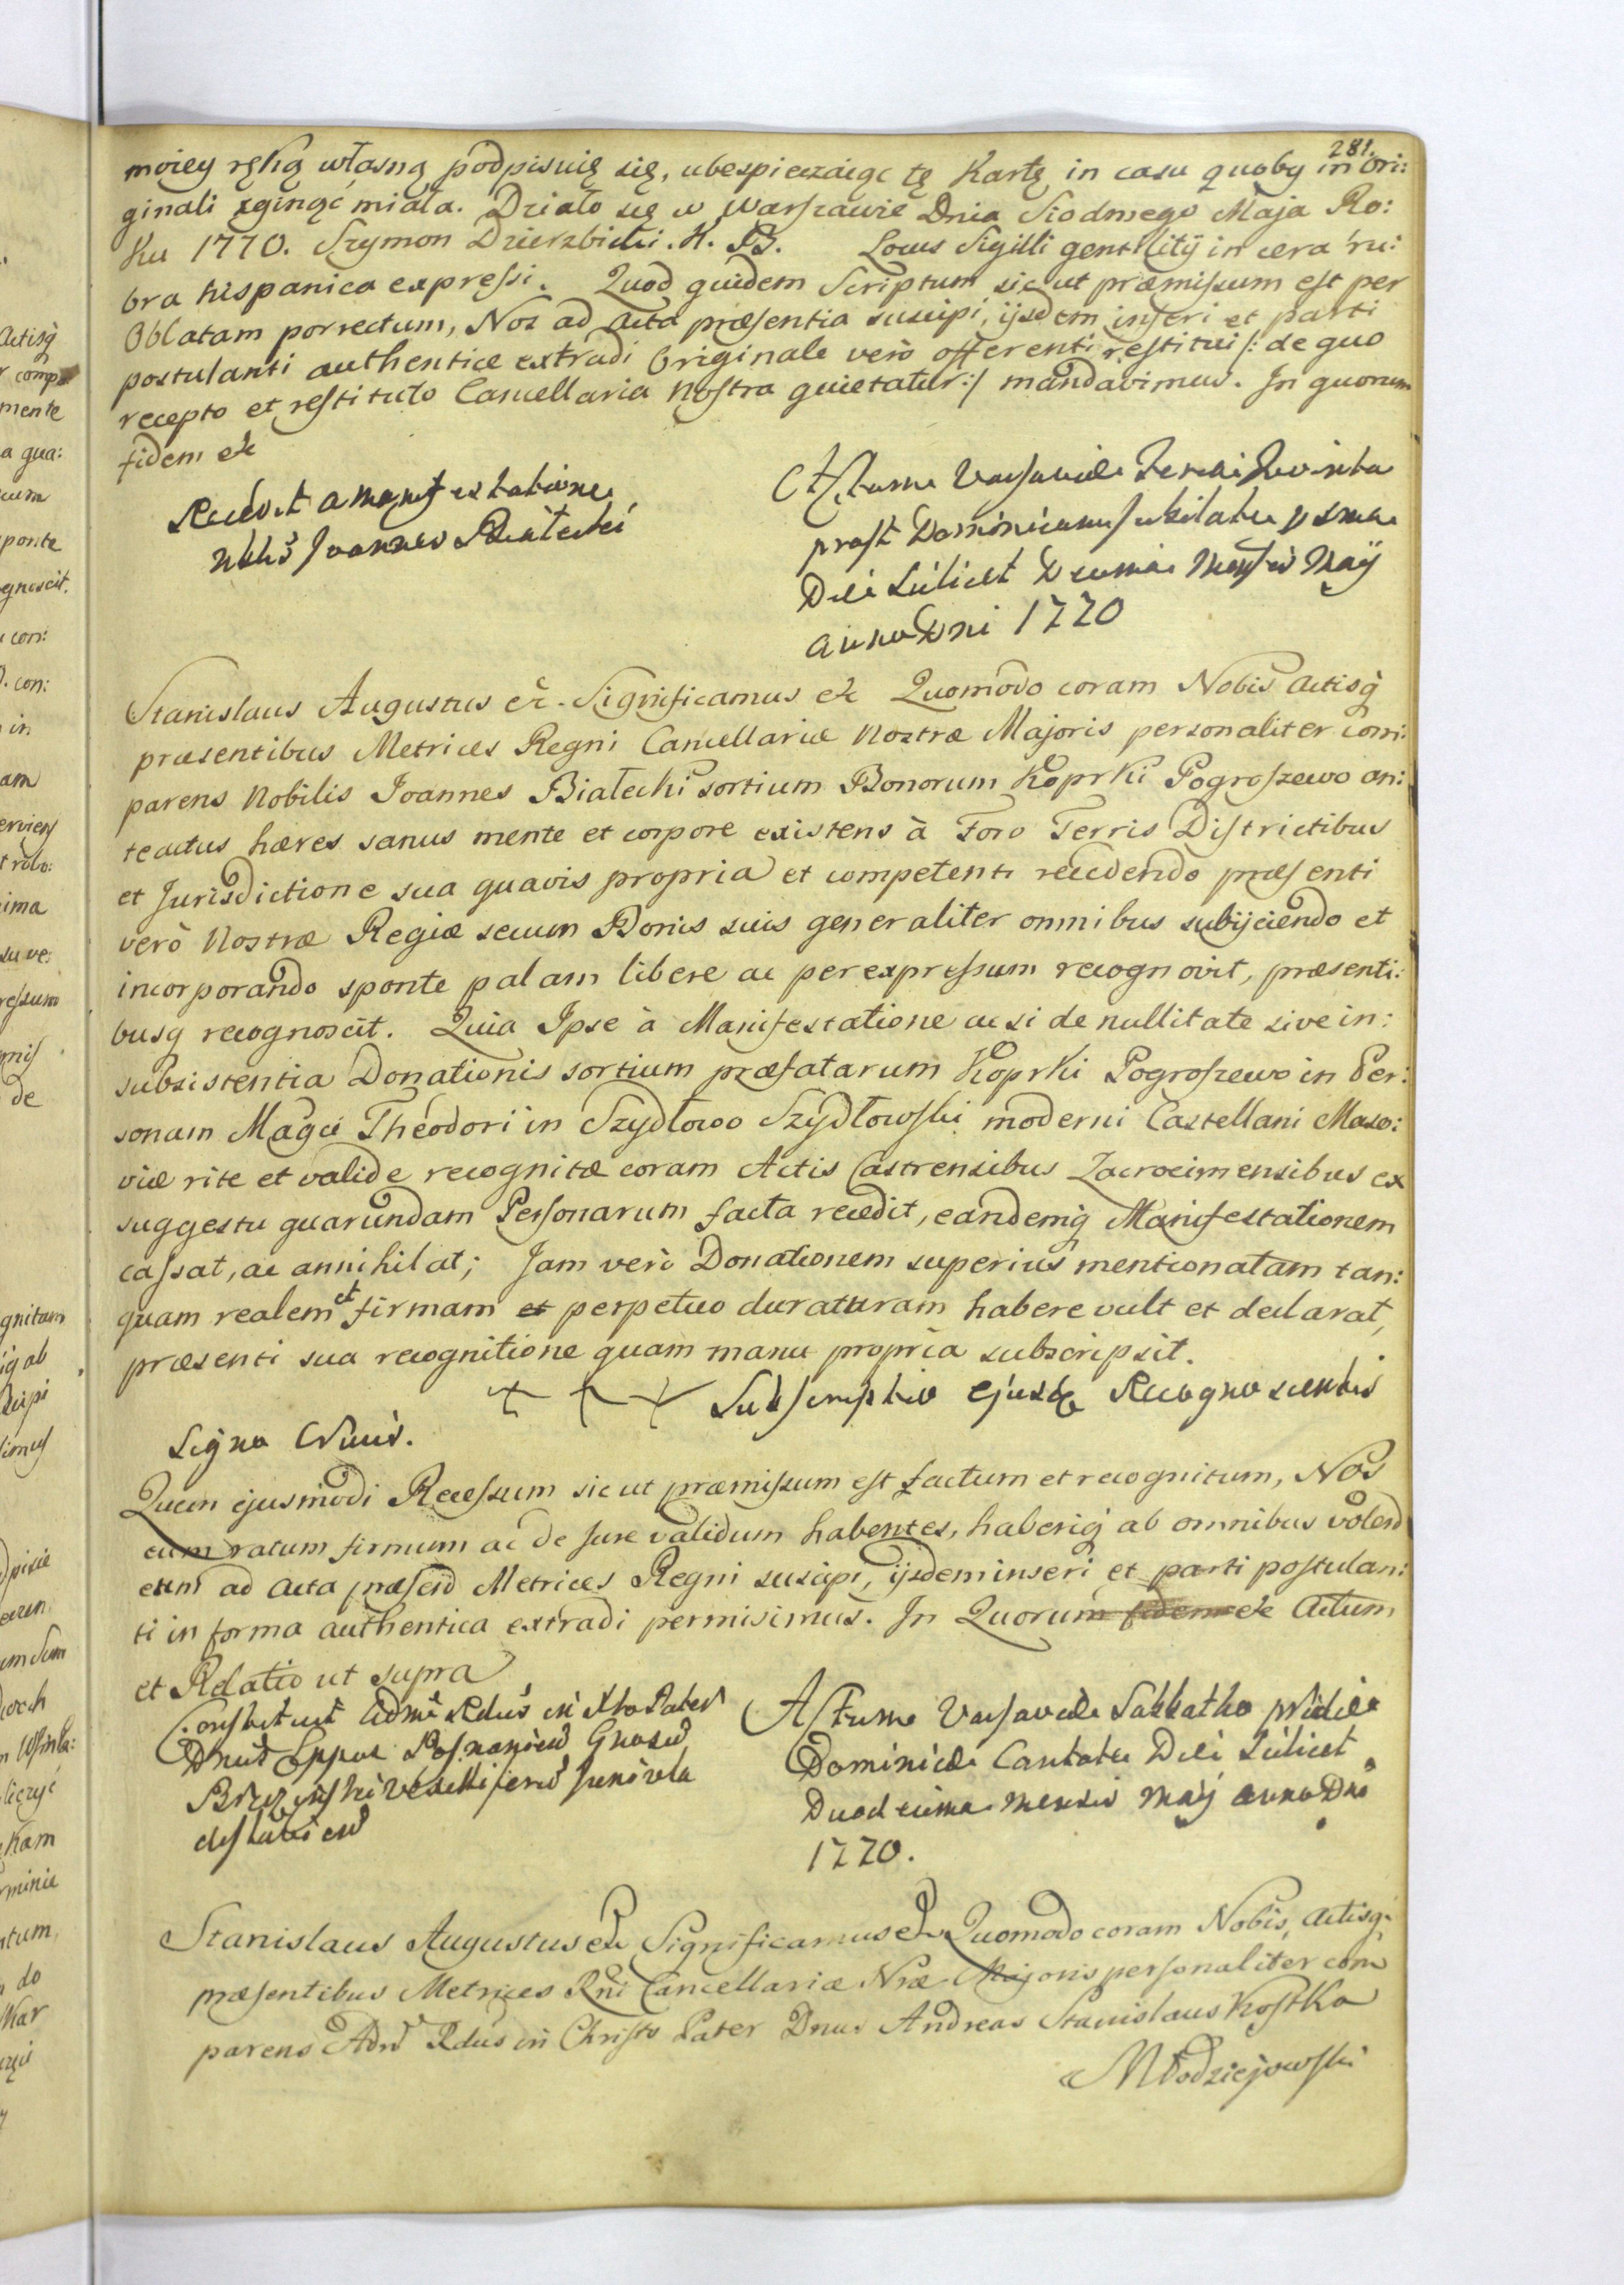 281.
moiey ręką własną podpisuię się, ubespieczaiąc tę Kartę in casu quoby in Ori:
ginali zginąć miała. Działo się w Warszawie Dnia Siodmego Maja Ro:
ku 1770. Szymon Dzierzbicki. K. B. Locus Sigilli gentilitij in cera ru:
bra hispanica expressi. Quod quidem Scriptum sic ut præmissum est per
Oblatam porrectum, Nos ad Acta præsentia suscipi, ijsdem inseri et parti
postulanti authentice extradi Originale verò offerenti restitui /: de quo
recepto et restituto Cancellaria Nostra quietatur :/ mandavimus. In quorum
fidem etc
Recedit a manifestatione
Nblis Joannes Białecki
Actum Varsaviæ Feria Quinta
post Dominicam Jubilate
Die scilicet Decima Mensis Maÿ
anno Dni 1770
Stanislaus Augustus etc. Significamus etc Quomodo coram Nobis Actisq̃
præsentibus Metrices Regni Cancellariæ Nostræ Majoris personaliter com:
parens Nobilis Joannes Białecki sortium Bonorum Koprki Pogroszewo an:
teactus hæres sanus mente et corpore existens à Foro Terris Districtibus
et Jurisdictione sua quavis propria et competenti recedendo præsenti
verò Nostræ Regiæ secum Bonis suis generaliter omnibus subijciendo et
incorporando sponte palam libere ac per expressum recognovit, præsenti:
busq recognoscit. Quia Ipse à Manifestatione ac si de nullitate sive in:
subsistentia Donationis sortium præfatarum Koprki Pogroszewo in Per:
sonam Magci Theodori in Szydłowo Szydłowski moderni Castellani Maso:
viæ rite et valide recognitæ coram Actis Castrensibus Zacrocimensibus ex
suggestu quarundam Personarum facta recedit, eandemq̃ Manifestationem
cassat, ac annihilat; Jam verò Donationem superius mentionatam tan:
quam realem et firmam et perpetuo duraturam habere vult et declarat,
præsenti sua recognitione quam manu propria subscripsit.
+ + + Subscriptio ejusdem Recognoscentis
Signo Crucis.
Quem ejusmodi Recessum sic ut præmissum est factum et recognitum, Nos
eum ratum firmum ac de Jure validum habentes, haberiq̃ ab omnibus volend
eum ad Acta præsend Metrices Regni suscipi, ijsdem inseri et parti postulan:
ti in forma authentica extradi permisimus. In Quorum fidem etc Actum
et Relatio ut supra
Constituit Adm Rdus in Xto Pater
Dnus Eppus Posnanien Gnosum
Brzezinski Vexilliferum
Actum Varsaviæ Sabbatho pridie
Dominicæ Cantate Die scilicet
Duodecima Mensis Maÿ anno Dni
1770.
Stanislaus Augustus etc Significamus etc Quomodo coram Nobis, Actisq̃
præsentibus Metrices Rni Cancellariæ Nræ Majoris personaliter com
parens Adm Rdus in Christo Pater Dnus Andreas Stanislaus Kostka
Młodziejowski